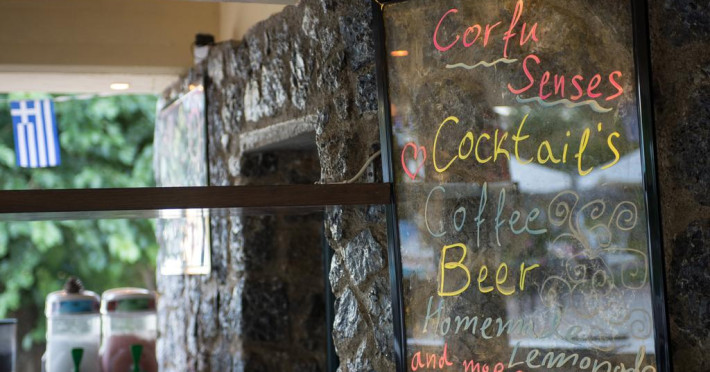 Corfu
Senses
Cocktail's
Coffee
Beer
Homemade
Lemonade
and more